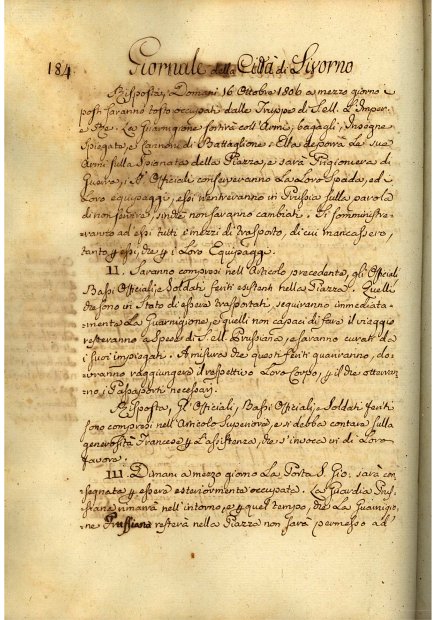 184. Giornale della Città di Livorno
Risposta, Domani 16 Ottobre 1806 a mezzo giorno i
posti saranno tosto occupati dalle Truppe di S. M. L'Imper.
e Re. La Guarnigione sortirà coll'Armi, bagagli, Insegne
spiegate, e Cannoni di Battaglione: Ella deporrà le sue
Armi sulla Spianata della Piazza, e sarà Prigioniera di
Guerra; Gl'Officiali conserveranno la Loro Spada, ed i
Loro equipaggi, e foi rientreranno in Prussia sulla parola
di non servire, sinche non saranno cambiati. Si somministre-
ranno ad essi tutti i mezzi di trasporto, di cui mancassero,
tanto p essi, che p i Loro Equipaggi.
11. Saranno compresi nell'Articolo precedente, gli Officiali
Bassi Officiali, e Soldati feriti esistenti nella Piazza. Quelli
che sono in Stato di essere trasportati, seguiranno immediata-
mente La Guarnigione, e quelli non capaci di fare il viaggio
resteranno a Spese di S. M. Prussiana, e saranno curati da
i suoi impiegati. A misura che questi feriti guariranno, do-
vranno raggiungere il respettivo Loro Corpo, p il che otterran-
no, i Passaporti necessarj.
Risposta, Gl'Officiali, Bassi Officiali, e Soldati feriti
sono compresi nell'Articolo Superiore, e si debba contare sulla
generosità Francese p L'assistenza, che s'invoca in di Loro
favore.
111. Dimani a mezzo giorno La Porta S. Gio. sarà con-
segnata p essere esteriormente occupata. La Guardia Prus-
siana rimarrà nell'intorno, e p quel tempo, che La Guarnigio-
ne Prussiana resterà nella Piazza non sarà permesso ad